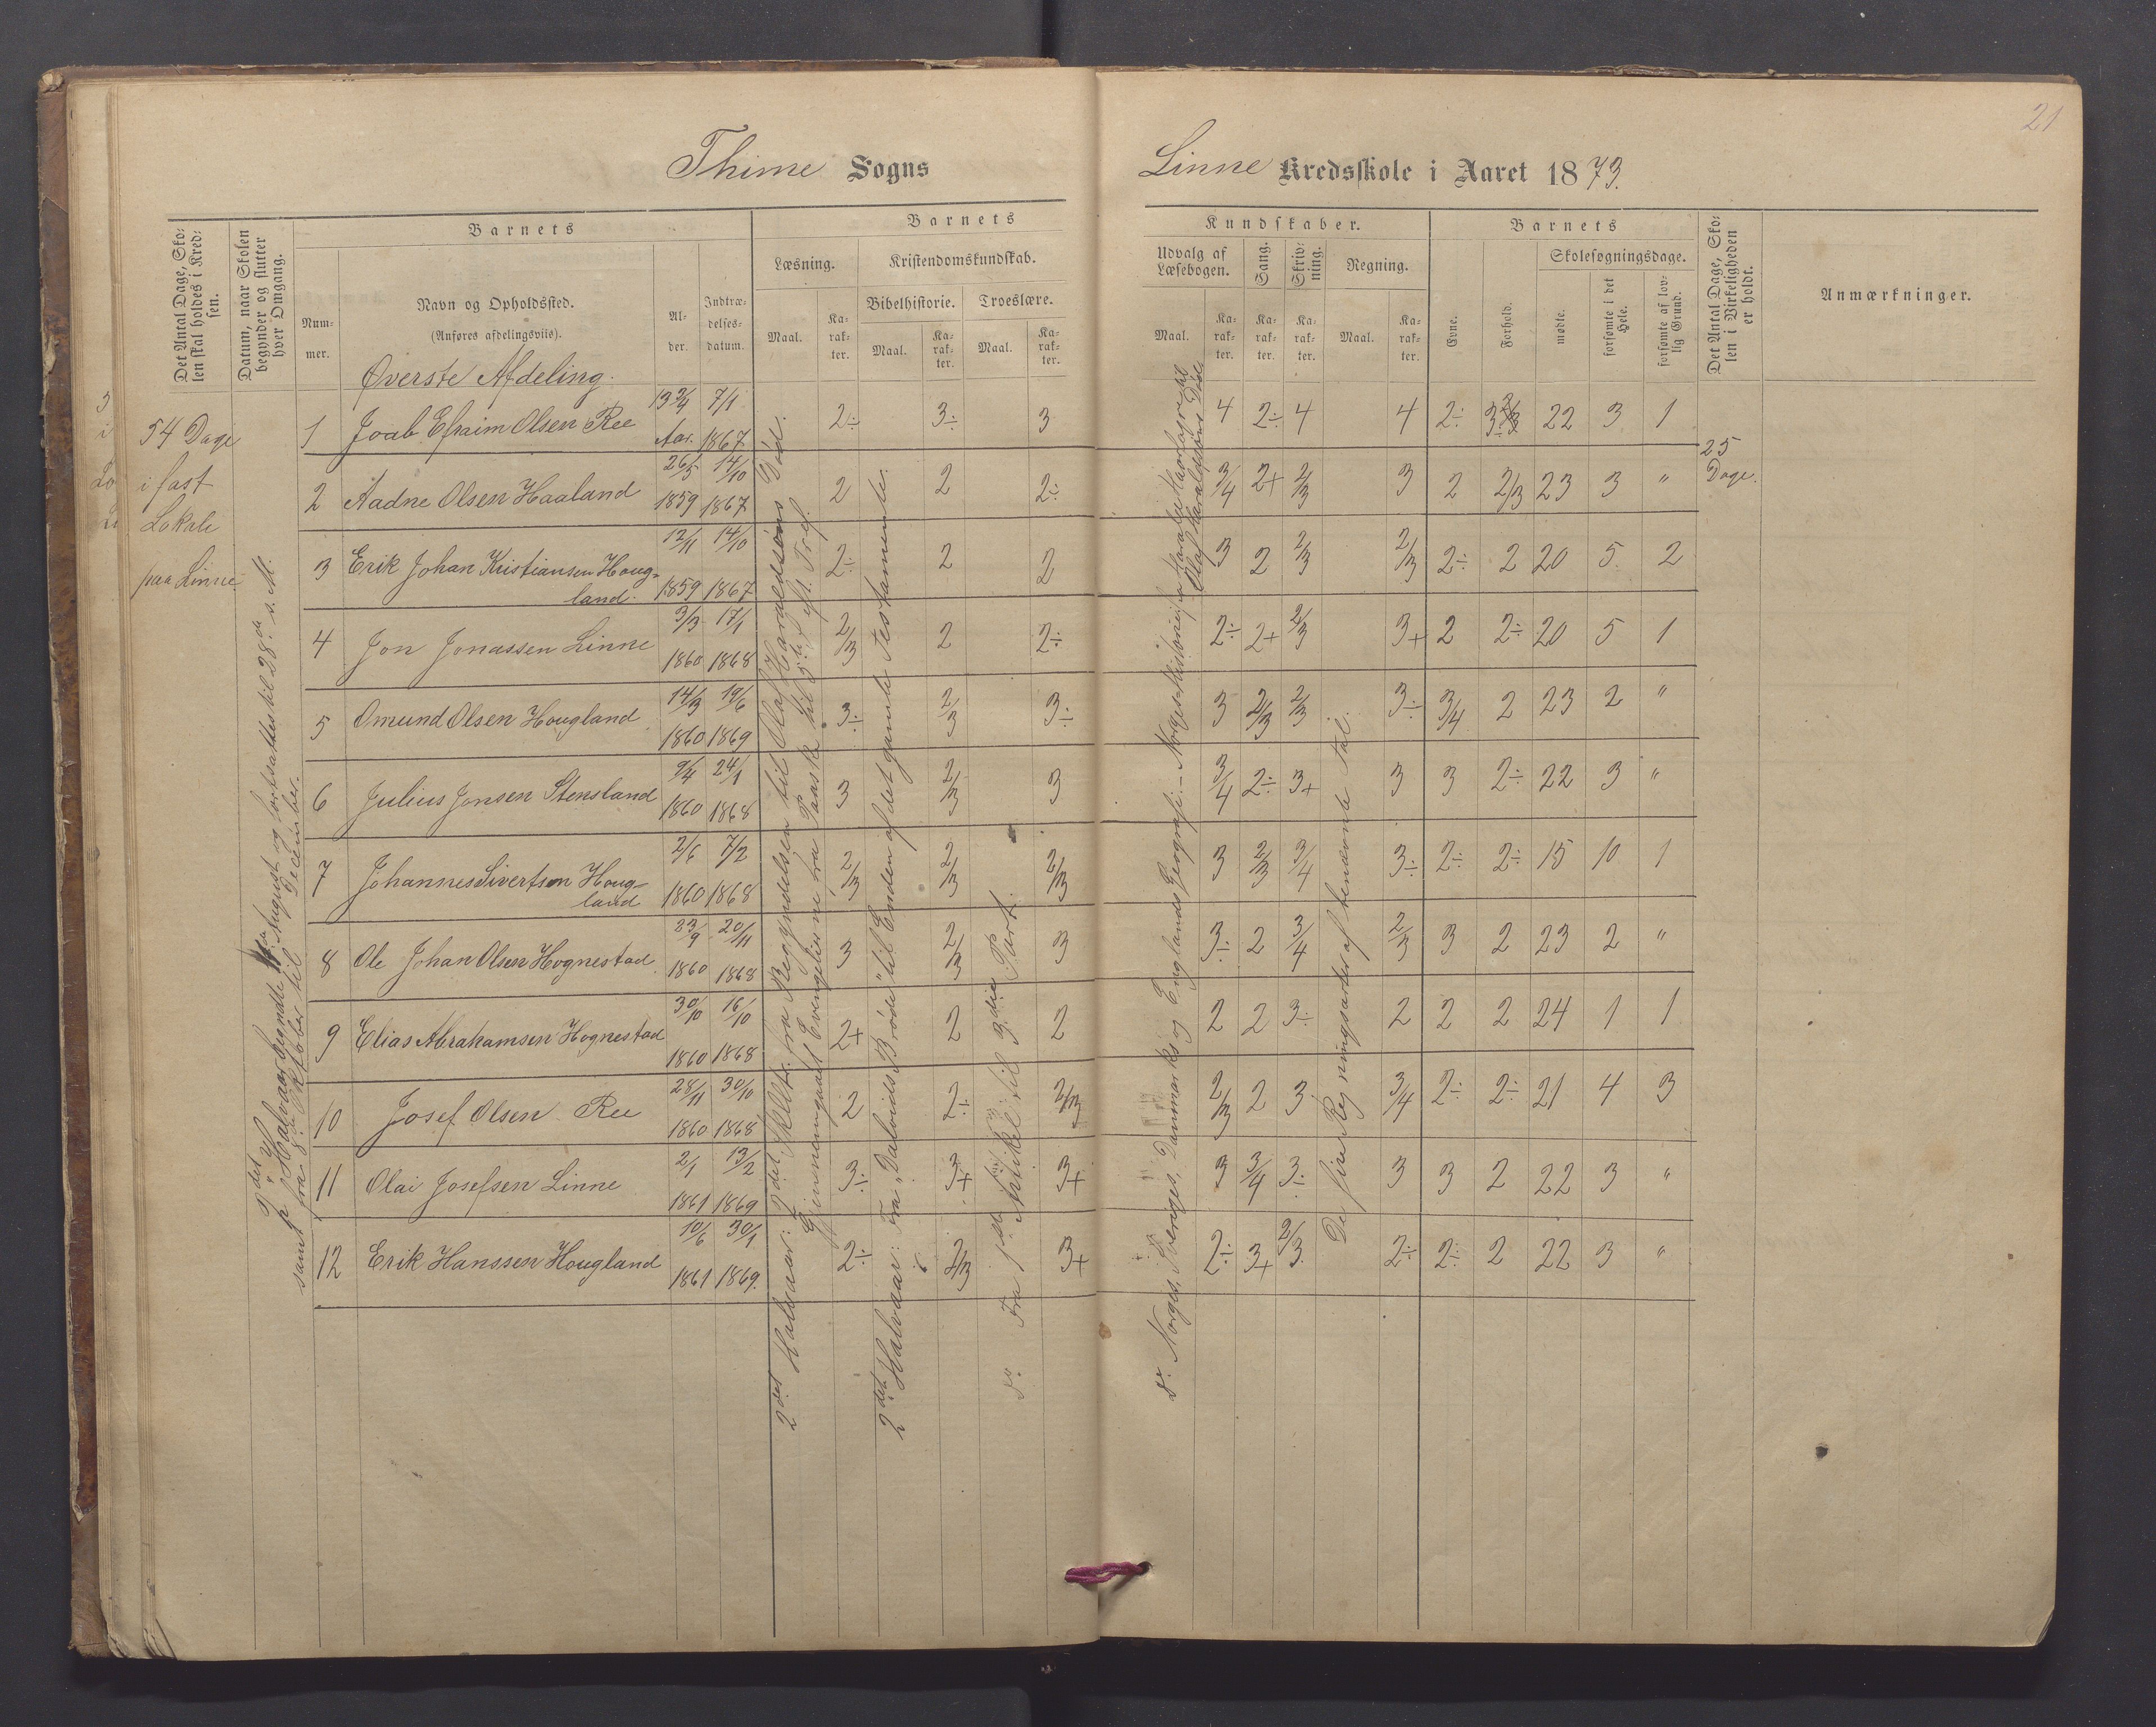 21
Thime Sogns
Linne Kredsskole i Aaret 1873.
Det Antal Dage, Skolen skal holdes i Kredsen.
Datum, naar Skolen begynder og slutter hver Omgang.
Barnets
Nummer.
Navn og Opholdssted.
(Anføres afdelingsviis).
Alder.
Indtrædelsesdatum.
Barnets
Læsning.
Kristendomskundskab.
Bibelhistorie.
Troeslære.
Maal.
Karakter.
Maal.
Karakter.
Maal.
Karakter.
Kundskaber.
Udvalg af Læsebogen.
Sang.
Skrivning.
Regning.
Maal.
Karakter.
Karakter.
Karakter.
Maal.
Karakter.
Barnets
Evne.
Forhold.
Skolesøgningsdage.
mødte.
forsømte i det Hele.
forsømte af lovlig Grund.
Det Antal Dage, Skolen i Virkeligheden er holdt.
Anmærkninger.
Øverste Afdeling.
54 Dage
i fast
Lokale
paa Linne.
25
Dage.
1 Joab Efraim Olsen Ree 13 3/4 Aar. 7/1 1867 2÷ 3÷ 3 4 2÷ 4 4 2÷ 22 3 1
2 Aadne Olsen Haaland 26/5 1859 14/10 1867 2 2 2÷ 3/4 2+ 2/3 3 2 2/3 23 3 "
3 Erik Johan Kristiansen Hougland. 12/11 1859 14/10 1867 2÷ 2 2 3 2 2/3 2/3 2÷ 2 20 5. 2
4 Jon Jonassen Linne 3/3 1860 17/1 1868 2/3 2 2÷ 2÷ 2+ 2/3 3+ 2 2÷ 20 5 1
5 Omund Olsen Hougland 14/3 1860 19/6 1869 3÷ 2/3 3÷ 3 2/3 2/3 3÷ 3/4 2 23 2 "
6 Julius Jonsen Stensland 9/4 1860 24/1 1868 3 2/3 3 3/4 2÷ 3+ 3 3 2÷ 22 3 "
7 Johannes Sivertsen Hougland 2/6 1860 7/2 1868 2/3 2/3 2/3 3 2/3 3/4 3÷ 2÷ 2÷ 15 10 1
8 Ole Johan Olsen Hognestad 23/9 1860 20/11 1868 3 2/3 3 3÷ 2 3/4 2/3 3 2 23 2 "
9 Elias Abrahamsen Hognestad 30/10 1860 16/10 1868 2+ 2 2 2 2 3÷ 2 2 2 24 1 1
10 Josef Olsen Ree 28/11 1860 30/10 1868 2 2÷ 2/3 2/3 2 3 3/4 2÷ 2÷ 21 4 3
11 Olai Josefsen Linne 2/1 1861 13/2 1869 3÷ 3+ 3+ 3 3/4 3÷ 3 3 2 22 3 "
12 Erik Hanssen Hougland 10/6 1861 30/1 1869. 2÷ 2/3 3+ 2÷ 3+ 2/3. 2÷ 2÷ 2 22 3 "
2det Halvaar begyndte August og fortsattes til 28de s. M.
samt fra 8de Oktober til December.
2det Halvaar: 2det Skellte. fra Begyndelsen til Olaf Haraldsøns Død.
Gjennemgaaet Evangelierne fra Paaske til 5te eft. Tref.
2det Halvaar: Fra "Davids Brøde" til Enden af det gamle Testamente.
do. Fra 1ste Artikel til 3die Part.
do. Norges, Sveriges, Danmarks og Englands Geografi. – Norges Historie fra Harald Haarfagre til
Olaf Haraldsøns Død.
De fire Regningsarter af benævnte Tal.